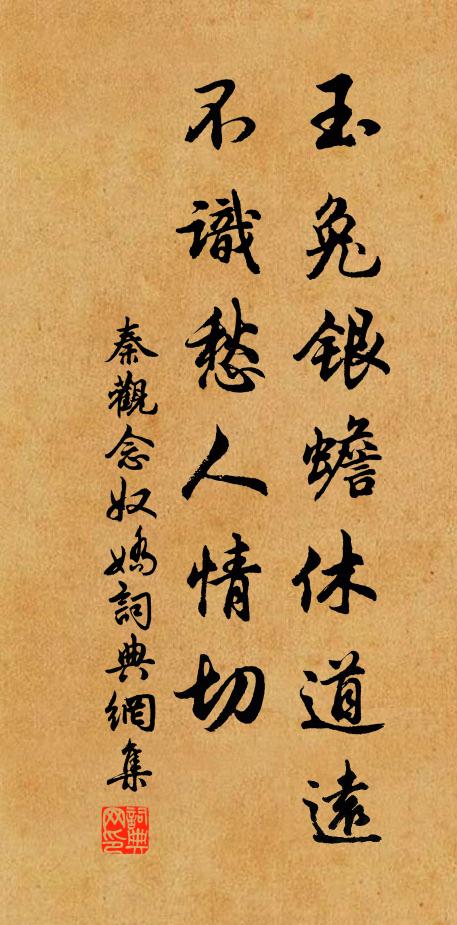 玉兔銀蟾休道遠
不識愁人情切
秦觀念奴嬌詞典網集
詞典网印